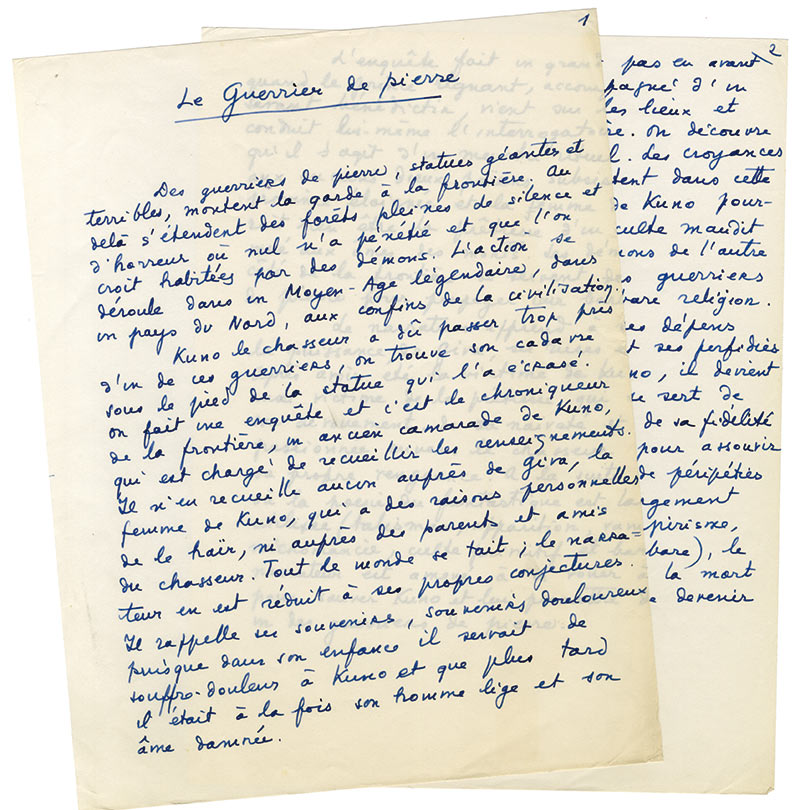 1
Le Guerrier de pierre
Des guerriers de pierre, statues géantes et
terribles, montent la garde à la frontière. Au
delà s'étendent des forêts pleines de silence et
d'horreur où nul n'a pénétré et que l'on
croit habitées par des démons. L'action se
déroule dans un Moyen-Age légendaire, dans
un pays du Nord, aux confins de la civilisation.
Kuno le chasseur a dû passer trop près
d'un de ces guerriers, on trouve son cadavre
sous le pied de la statue qui l'a écrasé.
On fait une enquête et c'est le chroniqueur
de la frontière, un ancien camarade de Kuno,
qui est chargé de recueillir les renseignements.
Il n'en recueille aucun auprès de Giva, la
femme de Kuno, qui a des raisons personnelles
de le haïr, ni auprès des parents et amis
du chasseur. Tout le monde se tait ; le narra=
teur en est réduit à ses propres conjectures.
Il rappelle ses souvenirs, souvenirs douloureux
puisque dans son enfance il servait de
souffre-douleur à Kuno et que plus tard
il était à la fois son homme lige et son
âme damnée.
2
L'enquête fait un grand pas en avant
pagné d'un
les lieux et
re. On découvre
l. Les croyances
tent dans cette
de Kuno pour-
culte maudit
mons de l'autre
guerriers
are religion.
es dépens
t ses perfidies
no, il devient
e sert de
de sa fidélité
pour assouvir
de péripéties
rgement
pirisme,
bare), le
la mort
devenir